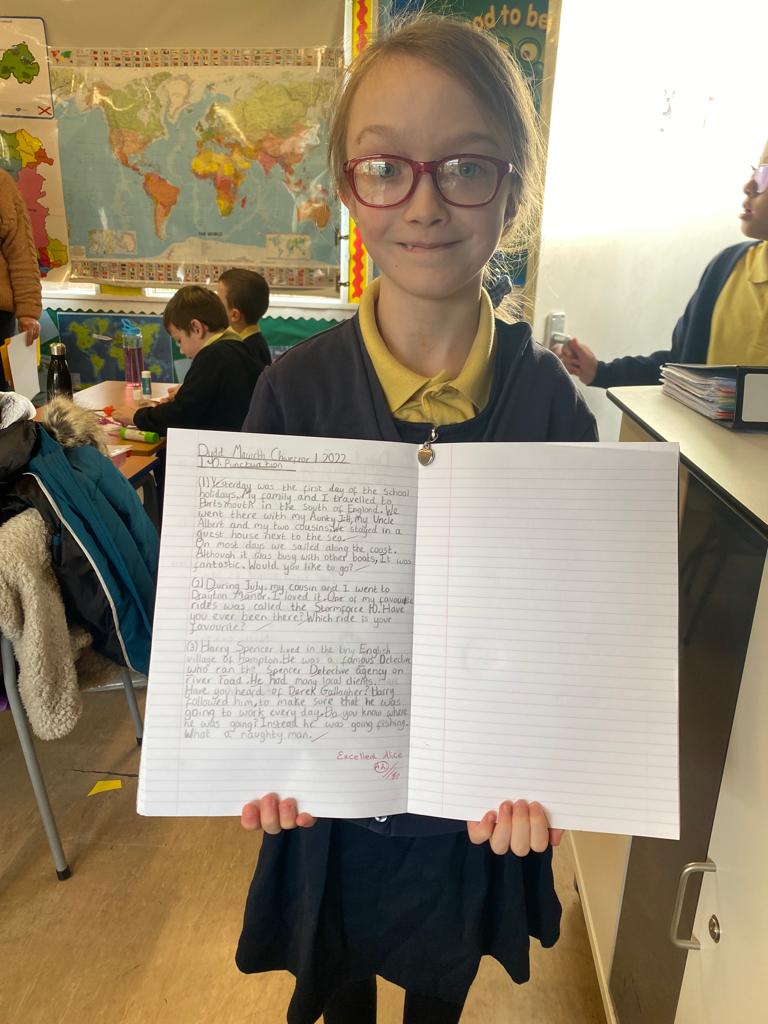 od to be
THE WORLD
Dydd Mawrth Chwefror 1 2022
Punctuation
(1) Yesterday was the first day of the school
holidays. My family and I travelled to
Portsmouth in the south of England. We
went there with my Aunty Jill, my Uncle
Albert and my two cousins. We stayed in a
guest house next to the sea.
On most days we sailed along the coast.
Although it was busy with other boats, It was
fantastic. Would you like to go?
(2) During July, my cousin and I went to
Drayton Manor. I loved it. One of my favourite
rides was called the Stormforce 10. Have
you ever been there? Which ride is your
favourite?
(3) Harry Spencer lived in the tiny English
village of Hampton. He was a famous Detective
who ran the Spencer Detective agency on
river road. He had many local clients.
Have you heard of Derek Gallagher? Harry
followed him, to make sure that he was
going to work every day. Do you know where
he was going? Instead he was going fishing.
What a naughty man.
Excellent Alice